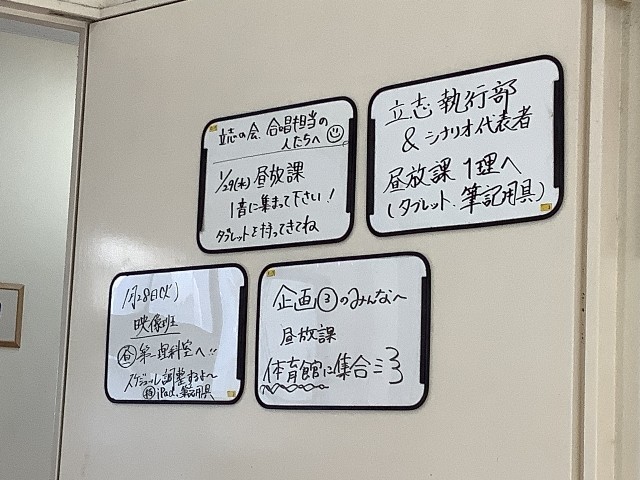 立志の会、合唱担当の
人たちへ
1/29(水)昼放課
1音に集まって下さい!
タブレットを持ってきてね
立志執行部
&シナリオ代表者
昼放課 1理へ
(タブレット、筆記用具)
1月28日(火)
映像班
昼 第一理科室へ!!
スケジュール調整するよ〜
持 iPad、筆記用具
企画③のみんなへ
昼放課
体育館に集合